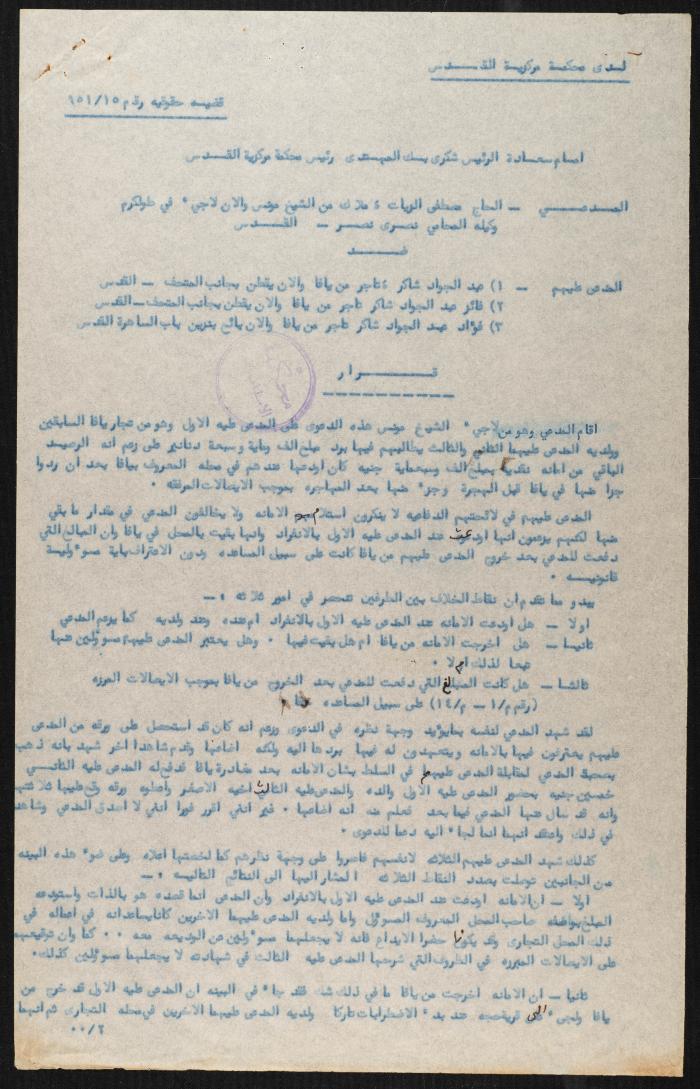 لدى محكمة مركزية القـــدس
قضيه حقوقيه رقم ١٥١/١٥
امام سعادة الرئيس شكرى بك المهتدى رئيس محكمة مركزية القـــدس
المـدعـــي — الحاج مصطفى الزيات ء ملاك من الشيخ مونس والان لاجيء في طولكرم
وكيله المحامي نصرى نصر — القـــدس
ضـــد
المدعى عليهم — ١) عبد الجواد شاكر ء تاجر من يافا والان يقطن بجانب المتحف — القدس
٢) فائز عبد الجواد شاكر تاجر من يافا والان يقطن بجانب المتحف — القدس
٣) فؤاد عبد الجواد شاكر تاجر من يافا والان بائع بنزين باب الساهرة القدس
قـــرار
اقام المدعي وهو من لاجيء الشيخ مونس هذه الدعوى على المدعى عليه الاول وهو من تجار يافا السابقين
وولديه المدعى عليهما الثاني والثالث يطالبهم فيها برد مبلغ الف ومايه وسبعة دنانير على زعم انه الرصيد
الباقي من امانه نقديه بمبلغ الف وسبعمايه جنيه كان اودعها عندهم في محله المعروف بيافا بعد ان ردوا
جزا منها في يافا قبل الهجرة وجزء منها بعد المهاجره بموجب الايصالات المرفقه ٠
المدعى عليهم في لائحتهم الدفاعيه لا ينكرون استلام الامانه ولا يخالفون المدعي في مقدار ما بقي
منها لكنهم يزعمون انها اودعت عند المدعى عليه الاول بالانفراد وانها بقيت بالمحل في يافا وان المبالغ التي
دفعت للمدعي بعد خروج المدعى عليهم من يافا كانت على سبيل المساعده ودون الاعتراف باية مسوءولية
قانونيـــه ٠
يبدو مما تقدم ان نقاط الخلاف بين الطرفين تنحصر في امور ثلاثه : —
اولا — هل اودعت الامانه عند المدعى عليه الاول بالانفراد ام عنده وعند ولديه كما يزعم المدعي
ثانيــا — هل اخرجت الامانه من يافا ام هل بقيت فيها ٠ وهل يعتبر المدعى عليهم مسوءولين عنها
تبعا لذلك ام لا ٠
ثالثــا — هل كانت المبالغ التي دفعت للمدعي بعد الخروج من يافا بموجب الايصالات المبرزه
(رقم م/١ — م/١٤) على سبيل المساعده
لقد شهد المدعي لنفسه بما يوءيد وجهة نظره في الدعوى وزعم انه كان قد استحصل على ورقه من المدعى
عليهم يعترفون فيها بالامانه ويتعهدون له فيها بردها اليه ولكنه اضاعها وقدم شاهدا اخر شهد بانه ذهب
بصحبة المدعي لمقابلة المدعى عليهم في السلط بشان الامانه بعد مغادرة يافا فدفع له المدعى عليه الثانـــي
خمسين جنيه بحضور المدعى عليه الاول والده والمدعى عليه الثالث اخيه الاصغر واعطوه ورقه وقع عليها ثلاثتهم
وانه قد سال عنها المدعي فيما بعد فعلم منه انه اضاعها ٠ غير انني اقرر فورا انني لا اصدق المدعي وشاهده
في ذلك واعتقد انهما انما لجاء اليه دعما للدعوى ٠
كذلك شهد المدعى عليهم الثلاثه لانفسهم فاصروا على وجهة نظرهم كما لخصتها اعلاه وعلى ضوء هذه البينه
من الجانبين توصلت بصدد النقاط الثلاثه المشار اليها الى النتائج التاليـه : —
اولا — ان الامانه اودعت عند المدعى عليه الاول بالانفراد وان المدعي انما قصده هو بالذات واستودعه
المبلغ بواصفه صاحب المحل المعروف المسوءول واما ولديه المدعى عليهما الاخرين كانا يساعدانه في اعماله في
ذلك المحل التجارى وقد يكونا حضرا الايداع فانه لا يجعلهما مسوءولين عن الوديعه معه ٠٠ كما وان توقيعهم
على الايصالات المبرزه في الظروف التي شرحها المدعى عليه الثالث في شهادته لا يجعلهما مسوءولين كذلك٠
ثانيا — ان الامانه اخرجت من يافا ما في ذلك شك فقد جاء في البينه ان المدعى عليه الاول قد خرج من
يافا ولجيء الى قرية حجه عند بدء الاضطرابات تاركا ولديه المدعى عليهما الاخرين في محله التجارى ثم انهما
٠٠/٢